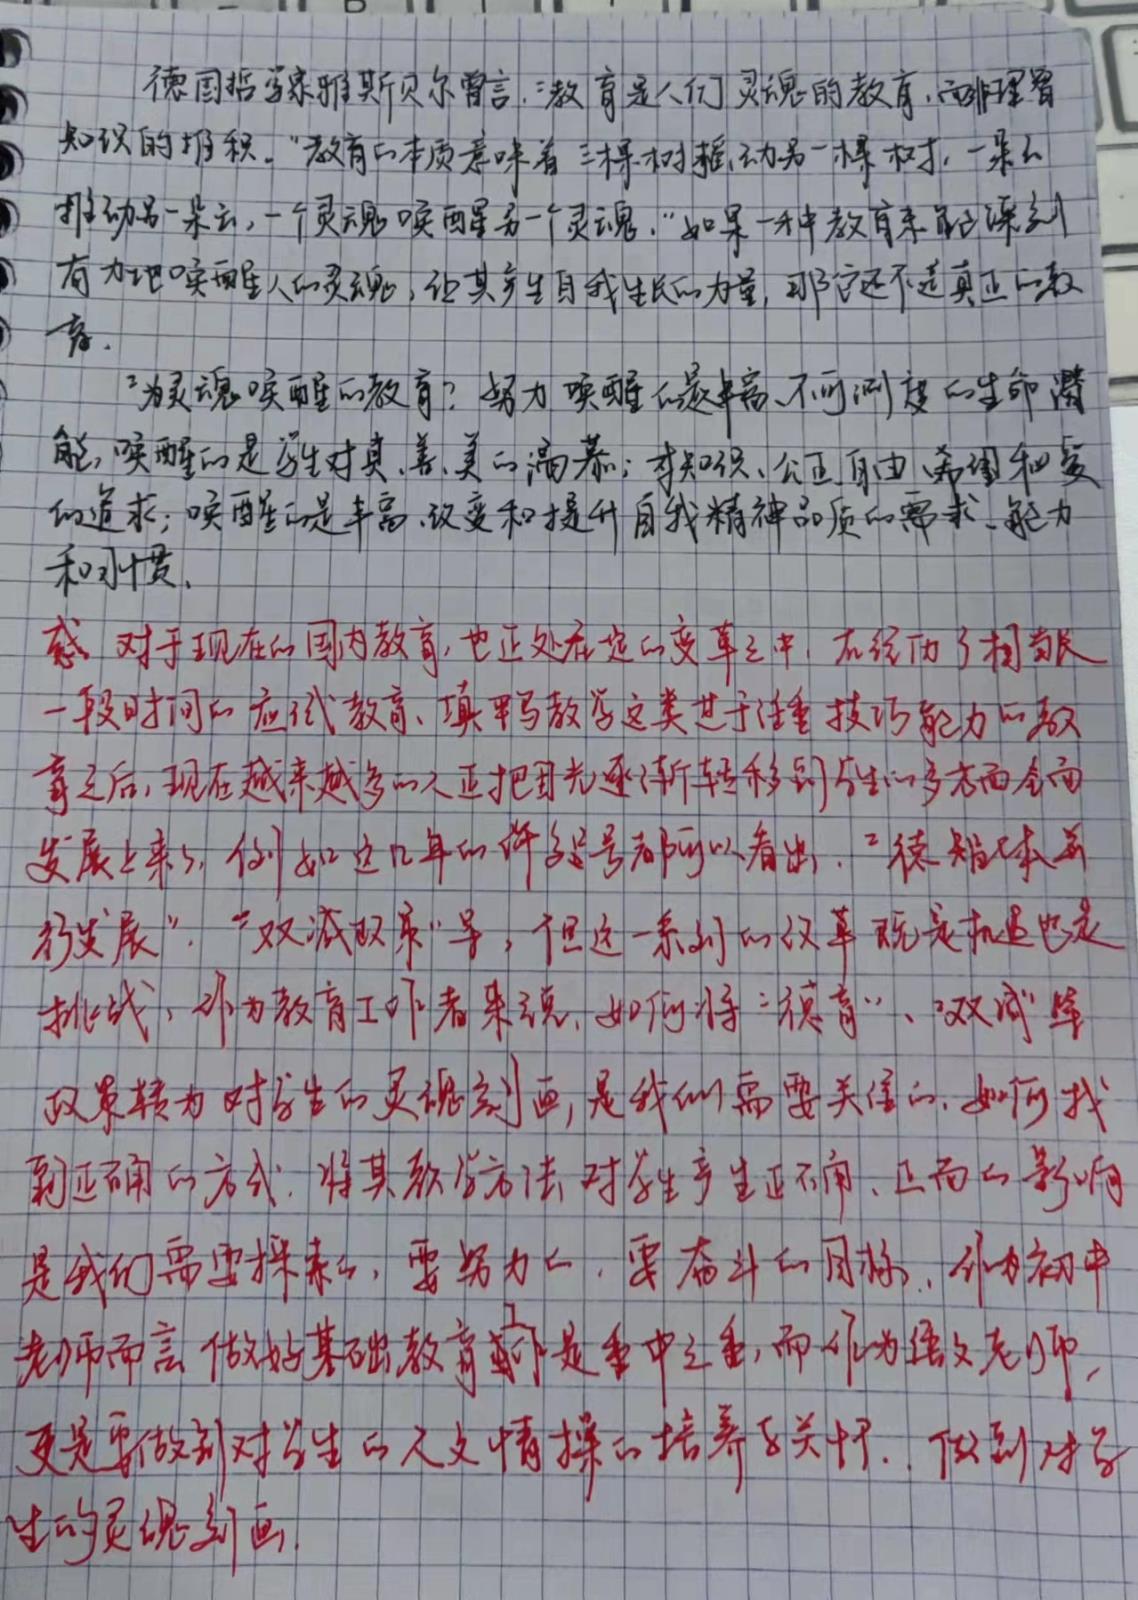 德国哲学家雅斯贝尔曾言:“教育是人们灵魂的教育,而非理智
知识的堆积。”教育的本质意味着“一棵树摇动另一棵树,一朵云
推动另一朵云,一个灵魂唤醒另一个灵魂。”如果一种教育未能深刻
有力地唤醒人的灵魂,使其产生自我生长的力量,那它还不是真正的教
育。
“为灵魂唤醒的教育”努力唤醒的是丰富、不可测度的生命潜
能,唤醒的是学生对真、善、美的渴慕;对知识、公正、自由、希望和爱
的追求;唤醒的是丰富、改变和提升自我精神品质的需求、能力
和习惯。
感 对于现在的国内教育,也正处在一定的变革之中,在经历了相当长
一段时间的应试教育、填鸭教学这类过于注重技巧能力的教
育之后,现在越来越多的人正把目光逐渐转移到学生的多方面全面
发展上来了,例如这几年的许多口号都可以看出,“德智体美
行发展”、“双减政策”等,但这一系列的改革既是机遇也是
挑战,作为教育工作者来说,如何将“德育”、“双减”等
政策转为对学生的灵魂刻画,是我们需要关注的,如何找
到正确的方式,将其教学方法对学生产生正确、正面的影响
是我们需要探索的,要努力的,要奋斗的目标,作为初中
老师而言 做好基础教育 是重中之重,而作为语文老师,
更是要做到对学生的人文情操的培养与关怀,做到对学
生的灵魂刻画.